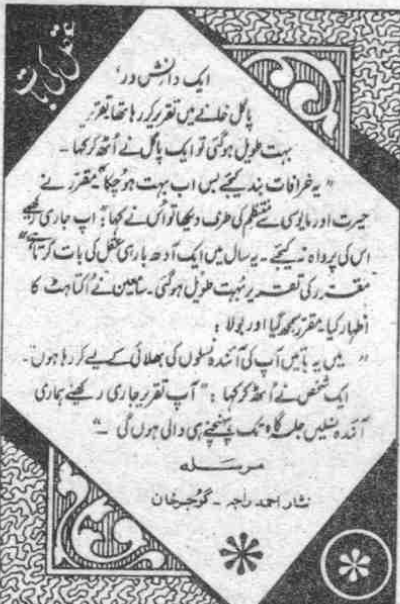 عقل کی بات
ایک دانش ور،
پاگل خانے میں تقریر کر رہا تھا تقریر
بہت طویل ہوگئی تو ایک پاگل نے اُٹھ کر کہا۔
" یہ خرافات بند کیجئے بس اب بہت ہو چکا" مقرر نے
حیرت اور مایوسی سے منتظم کی طرف دیکھا تو اُس نے کہا: آپ جاری رکھیے
اس کی پرواہ نہ کیجئے۔ یہ سال میں ایک آدھ بار ہی عقل کی بات کرتا ہے"
مقرر کی تقریر بہت طویل ہوگئی۔ سامعین نے اُکتاہٹ کا
اظہار کیا۔ مقرر سمجھ گیا اور بولا :
" میں یہ باتیں آپ کی آئندہ نسلوں کی بھلائی کے لیے کر رہا ہوں"۔
ایک شخص نے اُٹھ کر کہا : " آپ تقریر جاری رکھیے ہماری
آئندہ نسلیں جلسہ گاہ تک پہنچنے ہی والی ہوں گی ۔"
مرسلہ
نثار احمد راجہ ۔ گوجرخان